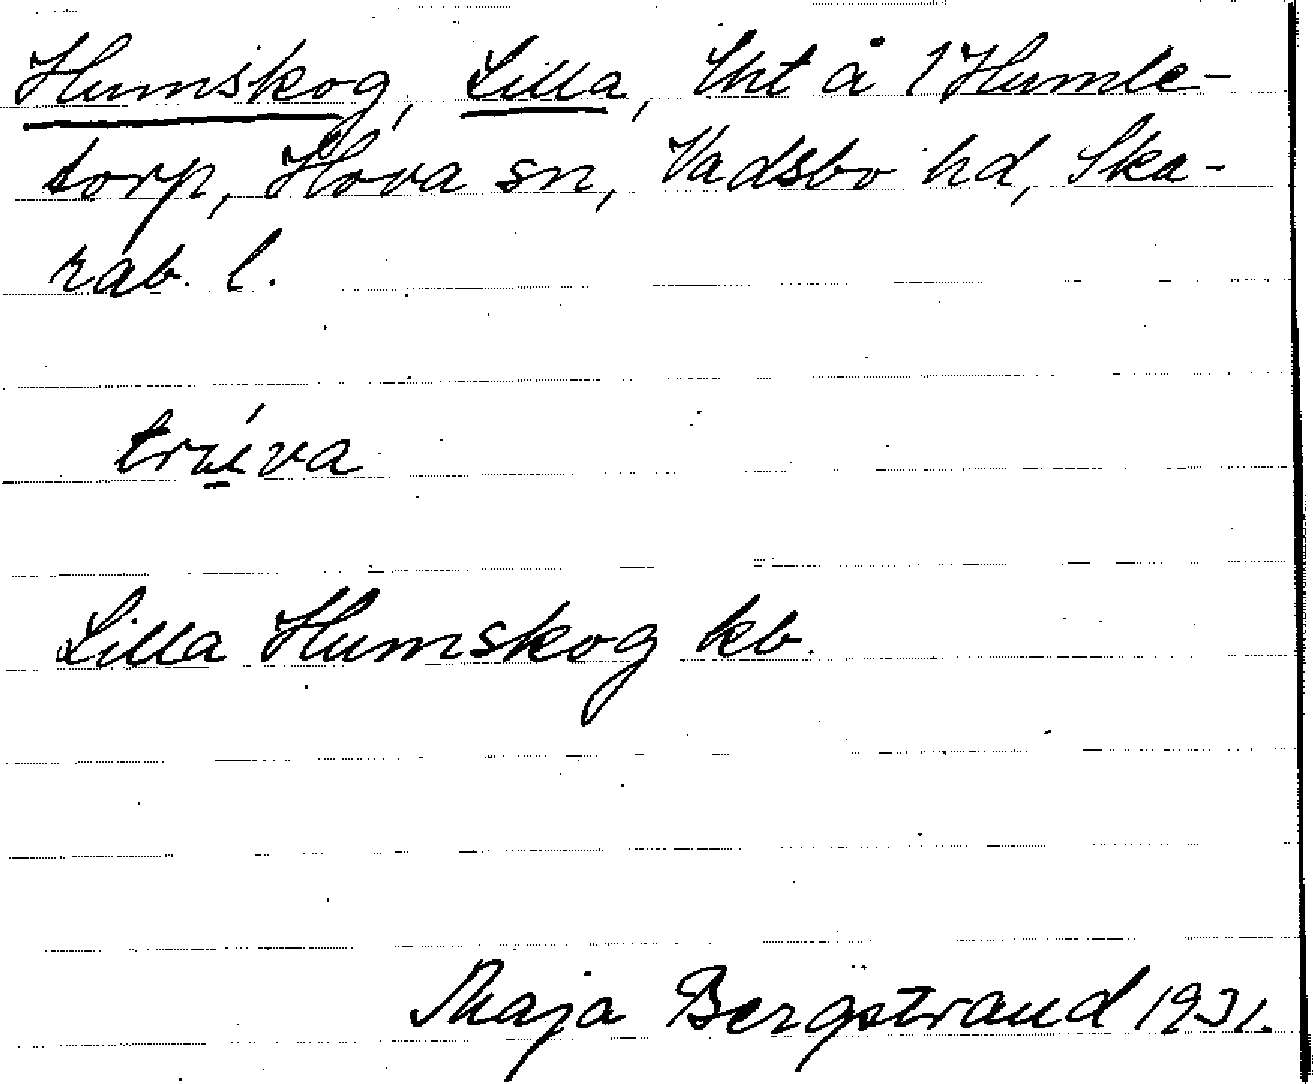 Humskog, Lilla, tht å 1 Humle-
torp, Hova sn, Vadsbo hd, Ska-
rab. l.
Lilla Humskog kb.
Maja Bergstrand 1931.